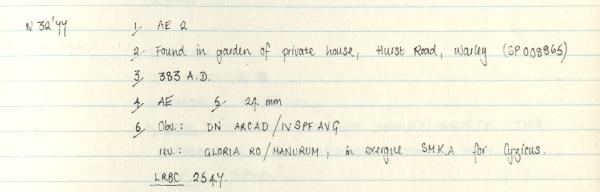 N 32'77 1. AE 2
2. Found in garden of private house, Hurst Road, Warley (SP 008865)
3. 383 A.D.
4. AE 5. 24 mm
6. Obv.: DN ARCAD/IVSPFAVG
rev.: GLORIA RO/MANURUM, in exergue SMKA for Cyzicus.
LRBC 2547.